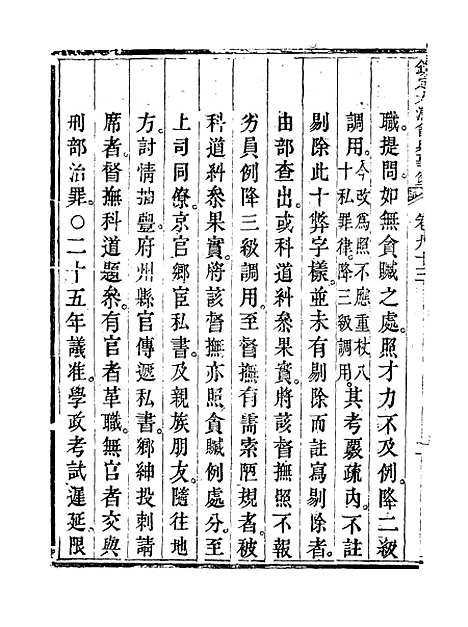 欽定大清會典事例 卷九十三
職提問。如無貪贓之處。照才力不及例。降二級
調用。今改爲照不應重杖八十私罪律。降三級調用。其考覈疏內。不註
剔除此十弊字樣。並未有剔除而註寫剔除者。
由部查出。或科道糾參果實。將該督撫照不報
劣員例降三級調用。至督撫有需索陋規者。被
科道糾參果實。將該督撫亦照貪贓例處分。至
上司同僚。京官鄉宦私書。及親族朋友。隨往地
方。討情抽豐。府州縣官傳遞私書。鄉紳投刺請
席者。督撫科道題參。有官者革職。無官者交與
刑部治罪。○二十五年議准。學政考試遲延、限